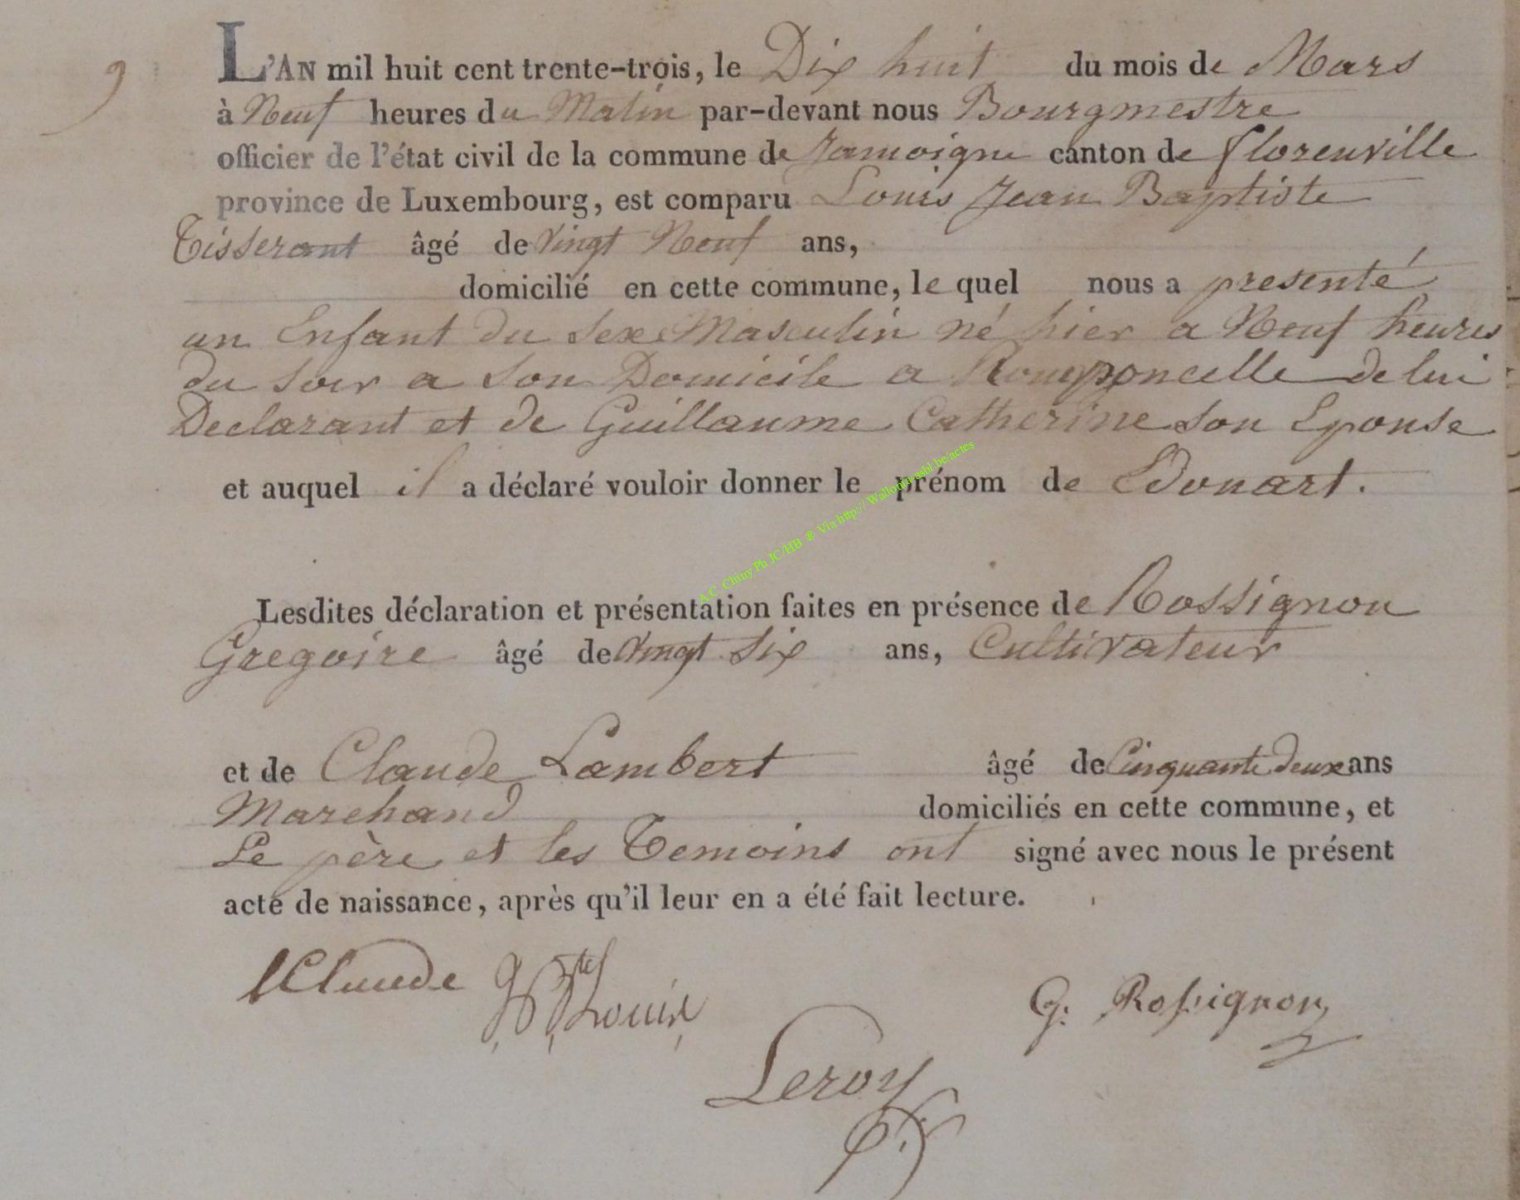 9
L'AN mil huit cent trente-trois, le Dix huit du mois de Mars
à Neuf heures du Matin par-devant nous Bourgmestre
officier de l'état civil de la commune de Jamoigne canton de florenville
province de Luxembourg, est comparu Louis Jean Baptiste
Tisserant âgé de Vingt Neuf ans,
domicilié en cette commune, le quel nous a presenté
un Enfant du sexe Masculin né hier a Neuf heures
du soir a son Domicile a Romponcelle de lui
Declarant et de Guillaume Catherine son Epouse
et auquel il a déclaré vouloir donner le prénom de Edouart.
A.C. Chiny Ph JC/HB @ Via http://Wallonia asbl.be/actes
Lesdites déclaration et présentation faites en présence de Rossignon
Gregoire âgé de Vingt Six ans, Cultivateur
et de Claude Lambert âgé de Cinquante deux ans
Marchand domiciliés en cette commune, et
Le père et les Temoins ont signé avec nous le présent
acte de naissance, après qu'il leur en a été fait lecture.
LClaude JBte Louis G: Rossignon
Leroy